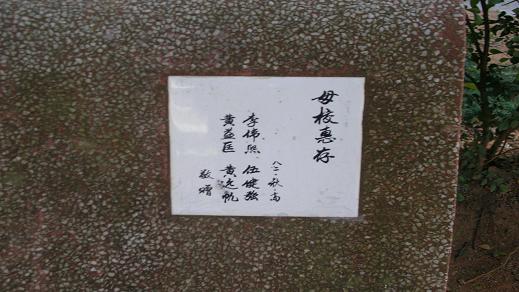 母校惠存
八二·秋·高
李伟熙 伍健强
黄益匡 黄远帆
敬赠